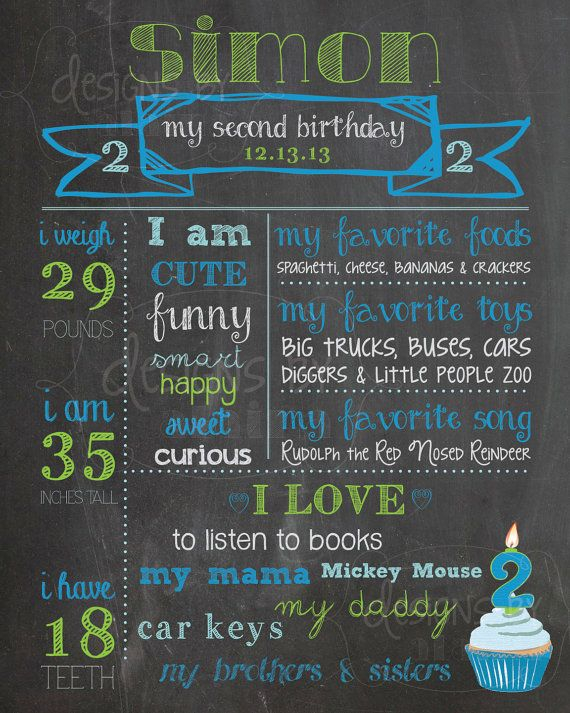 Simon
my second birthday
12.13.13
2
2
i weigh
29
POUNDS
i am
35
INCHES TALL
i have
18
TEETH
I am
CUTE
funny
smart
happy
sweet
curious
my favorite foods
SPAGHETTI, CHEESE, BANANAS & CRACKERS
my favorite toys
BIG TRUCKS, BUSES, CARS
DIGGERS & LITTLE PEOPLE ZOO
my favorite song
RUDOLPH THE RED NOSED REINDEER
I LOVE
to listen to books
my mama Mickey Mouse
my daddy
car keys
my brothers & sisters
2
designs by
designs by
designs by